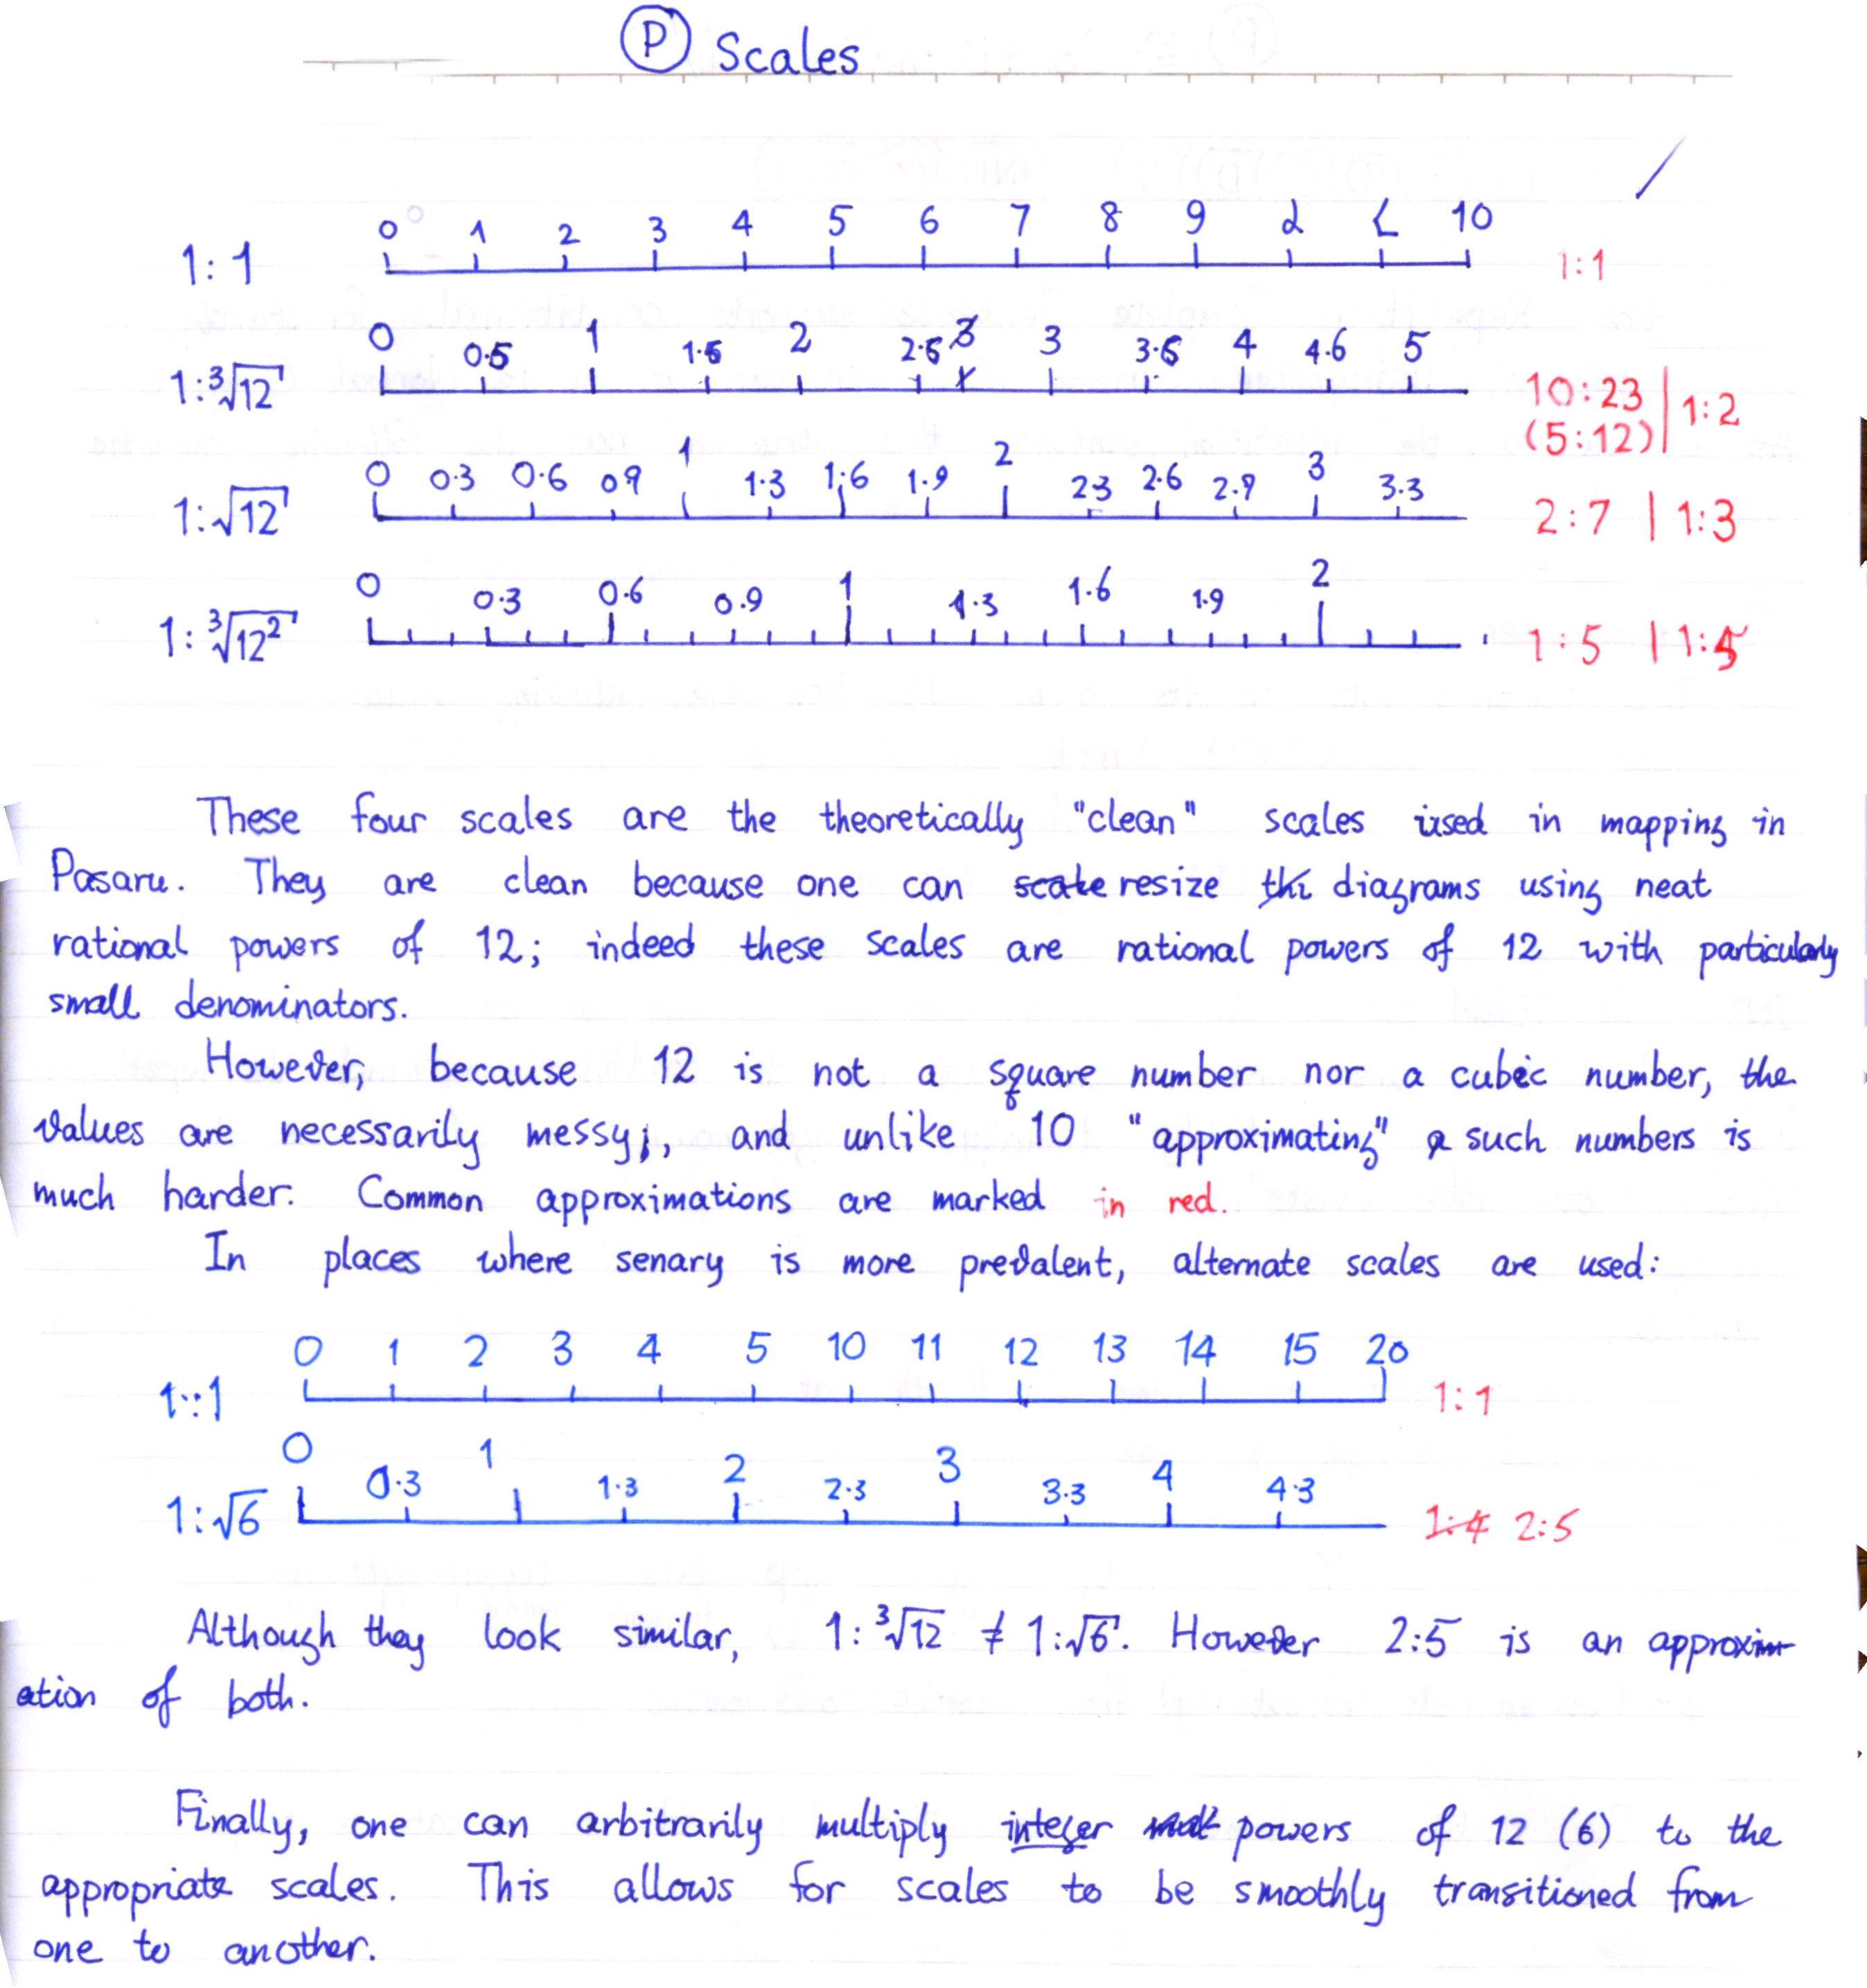 Ⓟ Scales
0 1 2 3 4 5 6 7 8 9 ᘔ Ɛ 10
1:1 1:1
0 0·5 1 1·6 2 2·6 3 3 3·6 4 4·6 5
1:³√12 10:23 | 1:2
(5:12)
0 0·3 0·6 0·9 1 1·3 1·6 1·9 2 2·3 2·6 2·9 3 3·3
1:√12 2:7 | 1:3
0 0·3 0·6 0·9 1 1·3 1·6 1·9 2
1:³√12² 1:5 | 1:5
These four scales are the theoretically "clean" scales used in mapping in
Pasaru. They are clean because one can scale resize the diagrams using neat
rational powers of 12; indeed these scales are rational powers of 12 with particularly
small denominators.
However, because 12 is not a square number nor a cubic number, the
values are necessarily messy, and unlike 10 "approximating" such numbers is
much harder. Common approximations are marked in red.
In places where senary is more prevalent, alternate scales are used:
0 1 2 3 4 5 10 11 12 13 14 15 20
1:1 1:1
0 0·3 1 1·3 2 2·3 3 3·3 4 4·3
1:√6 1:4 2:5
Although they look similar, 1:³√12 ≠ 1:√6. However 2:5 is an approxim-
ation of both.
Finally, one can arbitrarily multiply integer powers of 12 (6) to the
appropriate scales. This allows for scales to be smoothly transitioned from
one to another.